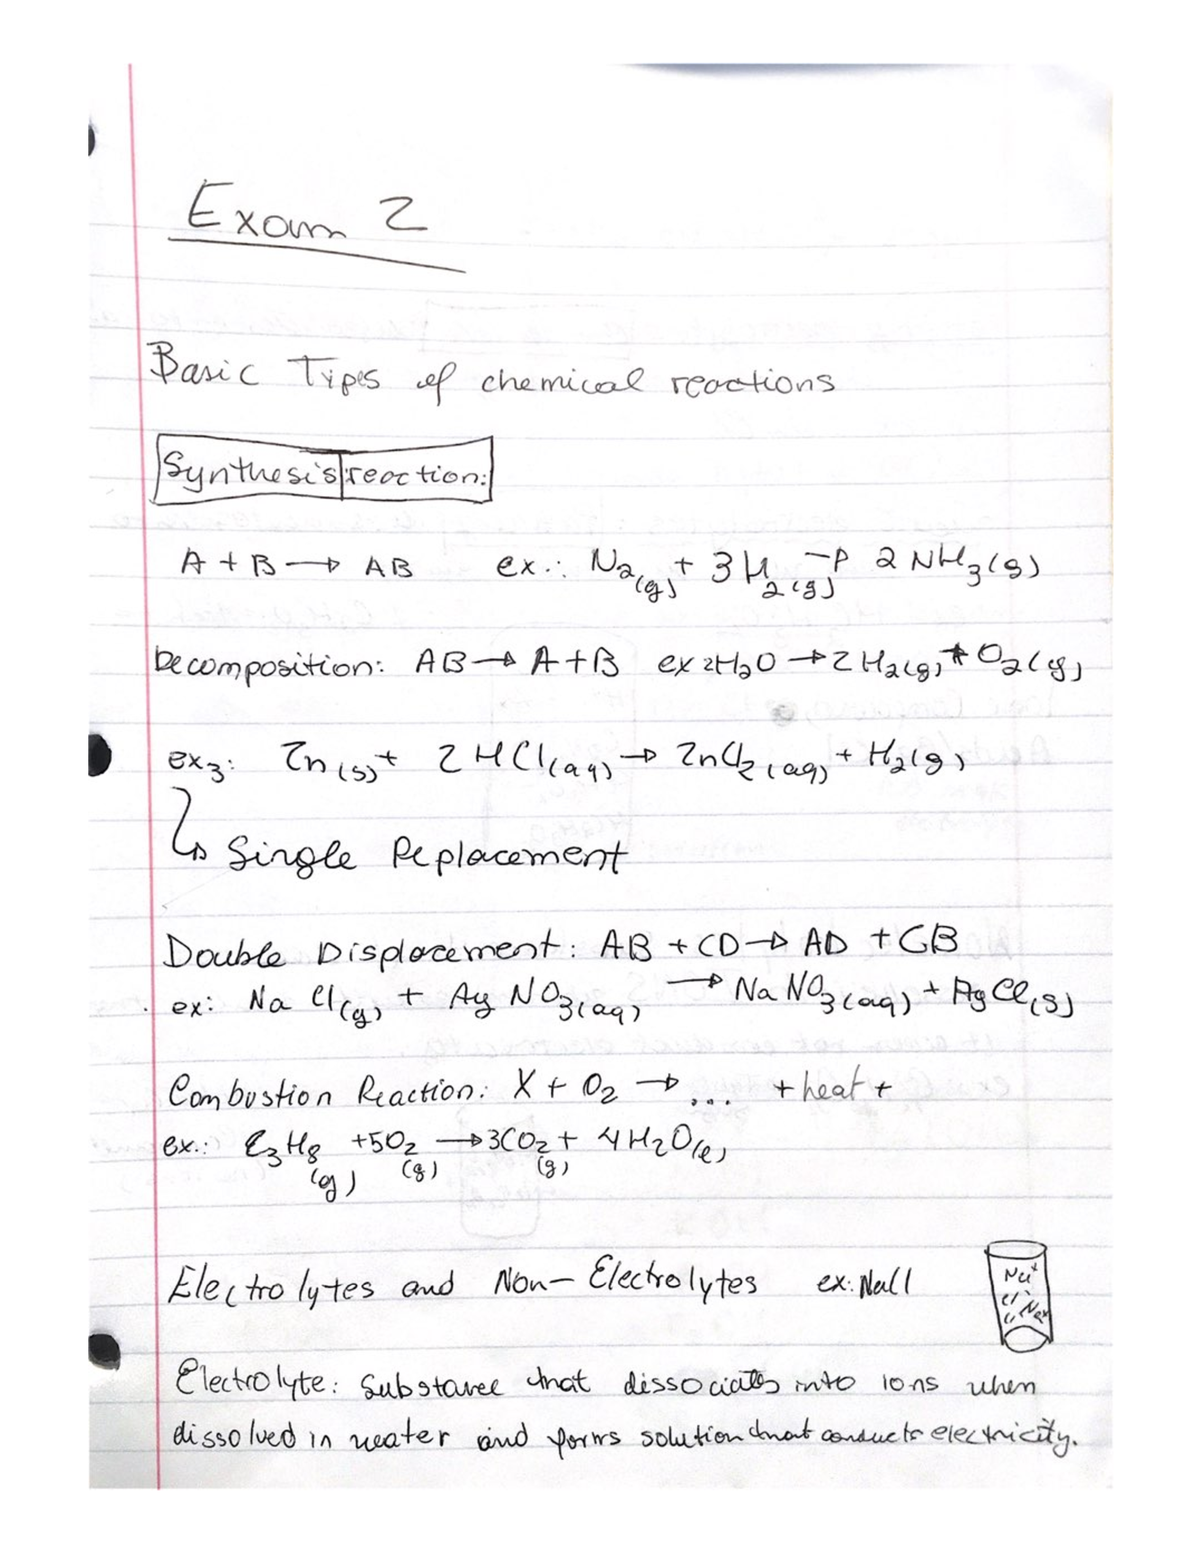 Exam 2
Basic Types of chemical reactions
Synthesis reaction:
A + B → AB ex.: N₂(g) + 3H₂(g) → 2 NH₃(g)
Decomposition: AB → A + B ex 2H₂O → 2 H₂(g) + O₂(g)
ex3: Zn(s) + 2 HCl(aq) → ZnCl₂(aq) + H₂(g)
↳ Single Replacement
Double Displacement: AB + CD → AD + CB
ex: NaCl(g) + AgNO₃(aq) → NaNO₃(aq) + AgCl(s)
Combustion Reaction: X + O₂ → ... + heat +
ex.: C₃H₈(g) + 5O₂(g) → 3CO₂(g) + 4H₂O(l)
Electrolytes and Non-Electrolytes ex: NaCl
Na⁺
Cl⁻
Electrolyte: Substance that dissociates into ions when
dissolved in water and forms solution that conducts electricity.